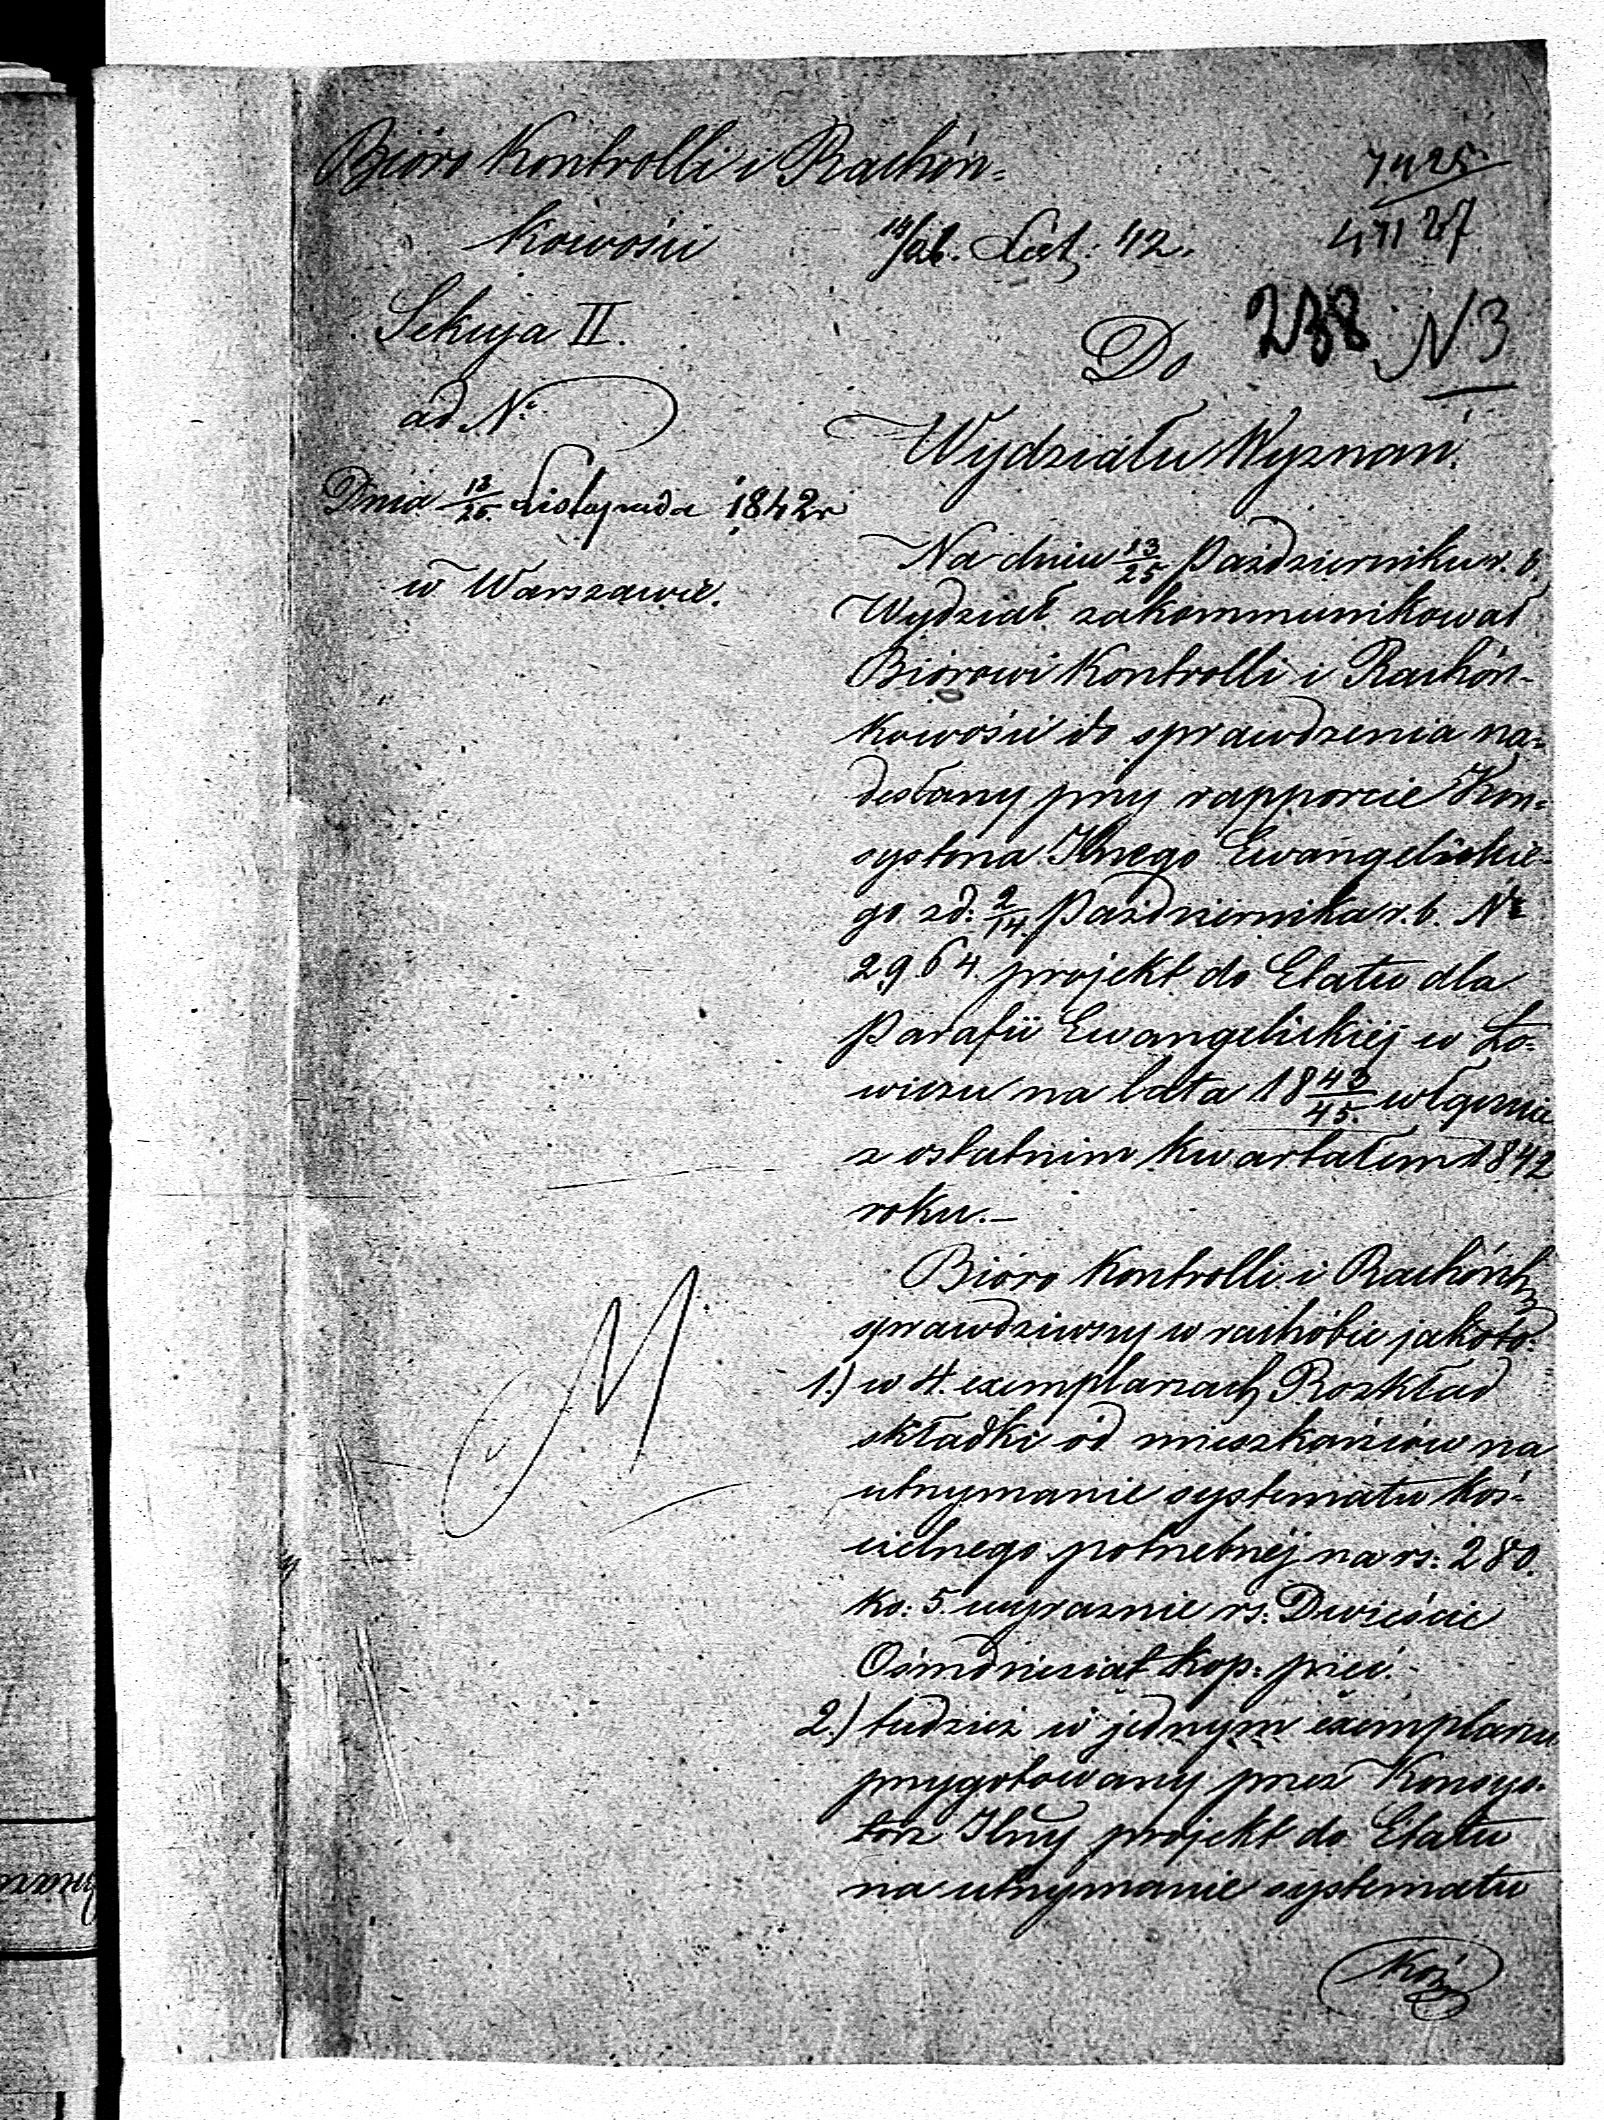 Bióro Kontrolli i Rachón=
kowości
Sekcya II.
ad Nr
Dnia 13/25. Listopada 1842 r
w Warszawie.
14/26. List: 42.
7425
238 N 3
Do
Wydziału Wyznań.
Na dniu 13/25 Październiku r. b.
Wydział zakommunikował
Biórowi Kontrolli i Rachón-
kowości do sprawdzenia na=
desłany przy rapporcie Kon=
systorza Jlnego Ewangelickie-
go z d: 2/14. Października r. b. Nr
2964. projekt do Etatu dla
Parafii Ewangelickiéj w Ło-
wiczu na lata 18 43/45. włącznie
z ostatnim kwartałem 1842
roku.—
Bióro Kontrolli i Rachónk
sprawdziwszy w rachóbie jakoto:
1.) w 4. exemplarzach Rozkład
składki od mieszkańców na
utrzymanie systematu koś-
cielnego potrzebnéj na rs: 280.
ko: 5. wyraznie rs: Dwieście
Ośmdziesiąt kop: pięć.-
2.) tudzież w jednym exemplarzu
przygotowany przez Konsys-
torz Jlny projekt do Etatu
na utrzymanie systematu
Koś